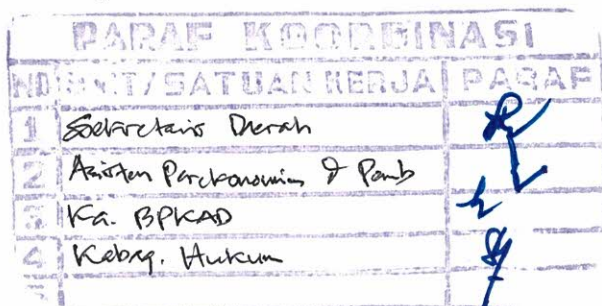 PARAF KOORDINASI
NO UNIT/SATUAN KERJA PARAF
1 Sekretaris Daerah
2 Asisten Perekonomian & Pemb
3 Ka. BPKAD
4 Kabag. Hukum
5